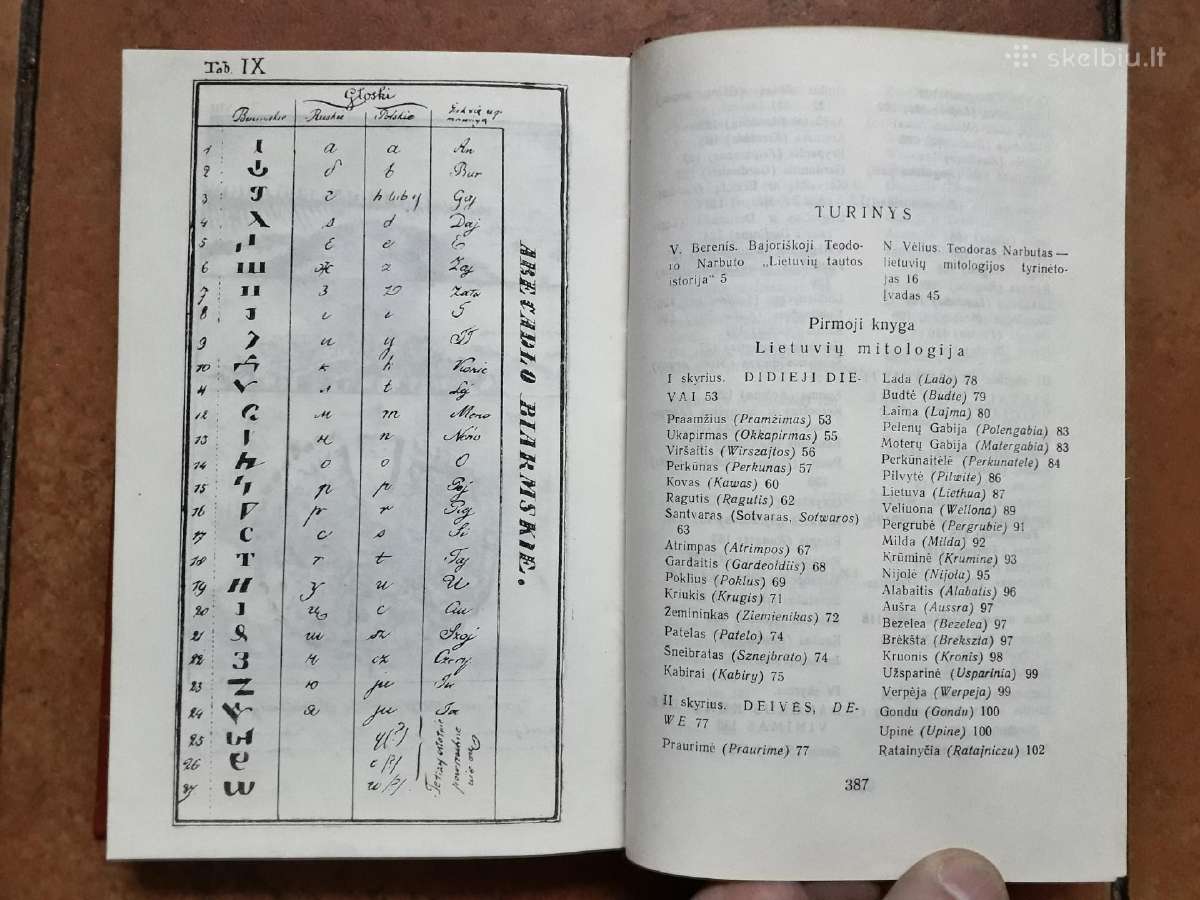 skelbiu.lt
Tab. IX
Głoski
Ruskie Polskie
1 a a An
2 б b Bur
3 г Goj
4 d Daj
5 e E
6 ж z
7 з
8 и
9 и y
10 к k
11 t
12 м m
13 н n
14 о o O
15 п p
16 р r
17 с s Si
18 т t Taj
19 у u U
20 ц c
21 ш sz Szoj
22 ч cz
23 ю ju Iu
24 я Ia
25 y(?)
26
27
ABECADŁO BIARMSKIE.
TURINYS
V. Berenis. Bajoriškoji Teodo-
ro Narbuto „Lietuvių tautos
istorija“ 5
N. Vėlius. Teodoras Narbutas —
lietuvių mitologijos tyrinėto-
jas 16
Įvadas 45
Pirmoji knyga
Lietuvių mitologija
I skyrius. DIDIEJI DIE-
VAI 53
Praamžius (Pramžimas) 53
Ukapirmas (Okkapirmas) 55
Viršaitis (Wirszajtos) 56
Perkūnas (Perkunas) 57
Kovas (Kawas) 60
Ragutis (Ragutis) 62
Santvaras (Sotvaras, Sotwaros)
63
Atrimpas (Atrimpos) 67
Gardaitis (Gardeoldiis) 68
Poklius (Poklus) 69
Kriukis (Krugis) 71
Žemininkas (Ziemienikas) 72
Patelas (Patelo) 74
Šneibratas (Sznejbrato) 74
Kabirai (Kabiry) 75
II skyrius. DEIVĖS, DE-
WE 77
Praurimė (Praurime) 77
Lada (Lado) 78
Budtė (Budte) 79
Laima (Lajma) 80
Pelenų Gabija (Polengabia) 83
Moterų Gabija (Matergabia) 83
Perkūnaitėlė (Perkunatele) 84
Pilvytė (Pilwite) 86
Lietuva (Liethua) 87
Veliuona (Wellona) 89
Pergrubė (Pergrubie) 91
Milda (Milda) 92
Krūminė (Krumine) 93
Nijolė (Nijola) 95
Alabaitis (Alabatis) 96
Aušra (Aussra) 97
Bezelea (Bezelea) 97
Brėkšta (Brekszta) 97
Kruonis (Kronis) 98
Užsparinė (Usparinia) 99
Verpėja (Werpeja) 99
Gondu (Gondu) 100
Upinė (Upine) 100
Ratainyčia (Ratajniczu) 102
387